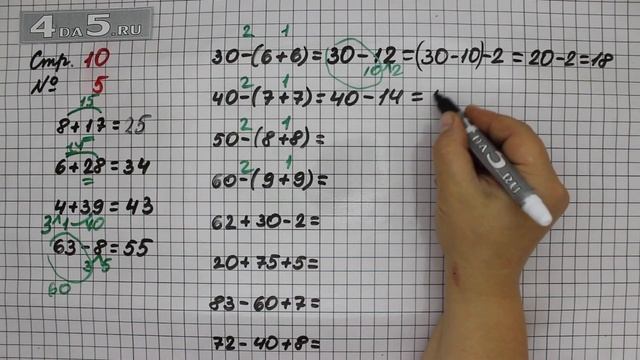 4DA5.RU
Стр. 10
№ 5
15
8+17=25
14
6+28=34
4+39=43
3 1 40
63-8=55
3 5
60
2 1
30-(6+6)=30-12=(30-10)-2=20-2=18
10 2
2 1
40-(7+7)=40-14=
2 1
50-(8+8)=
2 1
60-(9+9)=
62+30-2=
20+75+5=
83-60+7=
72-40+8=
4DA5.RU